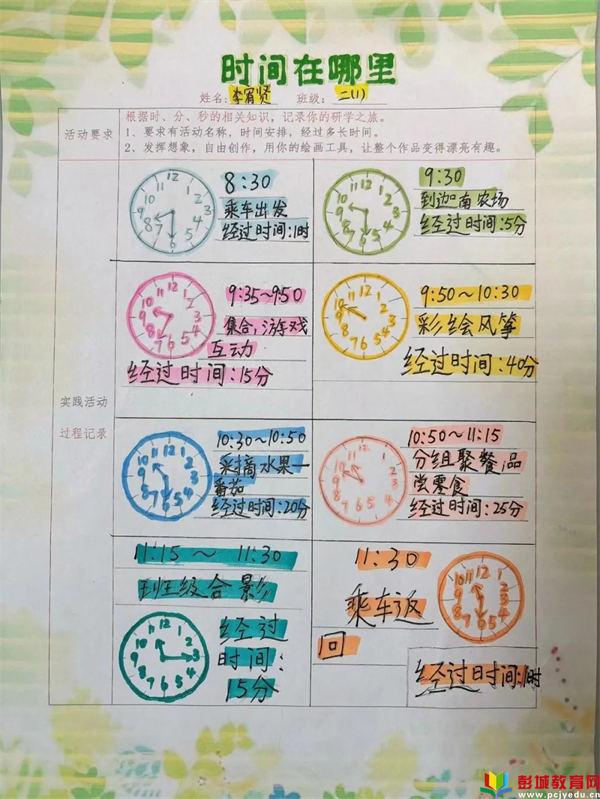 时间在哪里
姓名:李宥贤 班级:二(1)
活动要求
根据时、分、秒的相关知识，记录你的研学之旅。
1、要求有活动名称，时间安排，经过多长时间。
2、发挥想象，自由创作，用你的绘画工具，让整个作品变得漂亮有趣。
实践活动
过程记录
12 1 2 3 4 5 6 7 8 9 10 11
8:30
乘车出发
经过时间:1时
12 1 2 3 4 5 6 7 8 9 10 11
9:30
到迦南农场
经过时间:5分
12 1 2 3 4 5 6 7 8 9 10 11
9:35~9:50
集合,游戏
互动力
经过时间:15分
12 1 2 3 4 5 6 7 8 9 10 11
9:50~10:30
彩绘风筝
经过时间:40分
12 1 2 3 4 5 6 7 8 9 10 11
10:30~10:50
采摘水果一
番茄
经过时间:20分
12 1 2 3 4 5 6 7 8 9 10 11
10:50~11:15
分组聚餐品
尝零食
经过时间:25分
11:15 ~ 11:30
班级合影
12 1 2 3 4 5 6 7 8 9 10 11
经过
时间:
15分
11:30
乘车返
回
12 1 2 3 4 5 6 7 8 9 10 11
经过时间:1时
彭城教育网
www.pcjyedu.cn